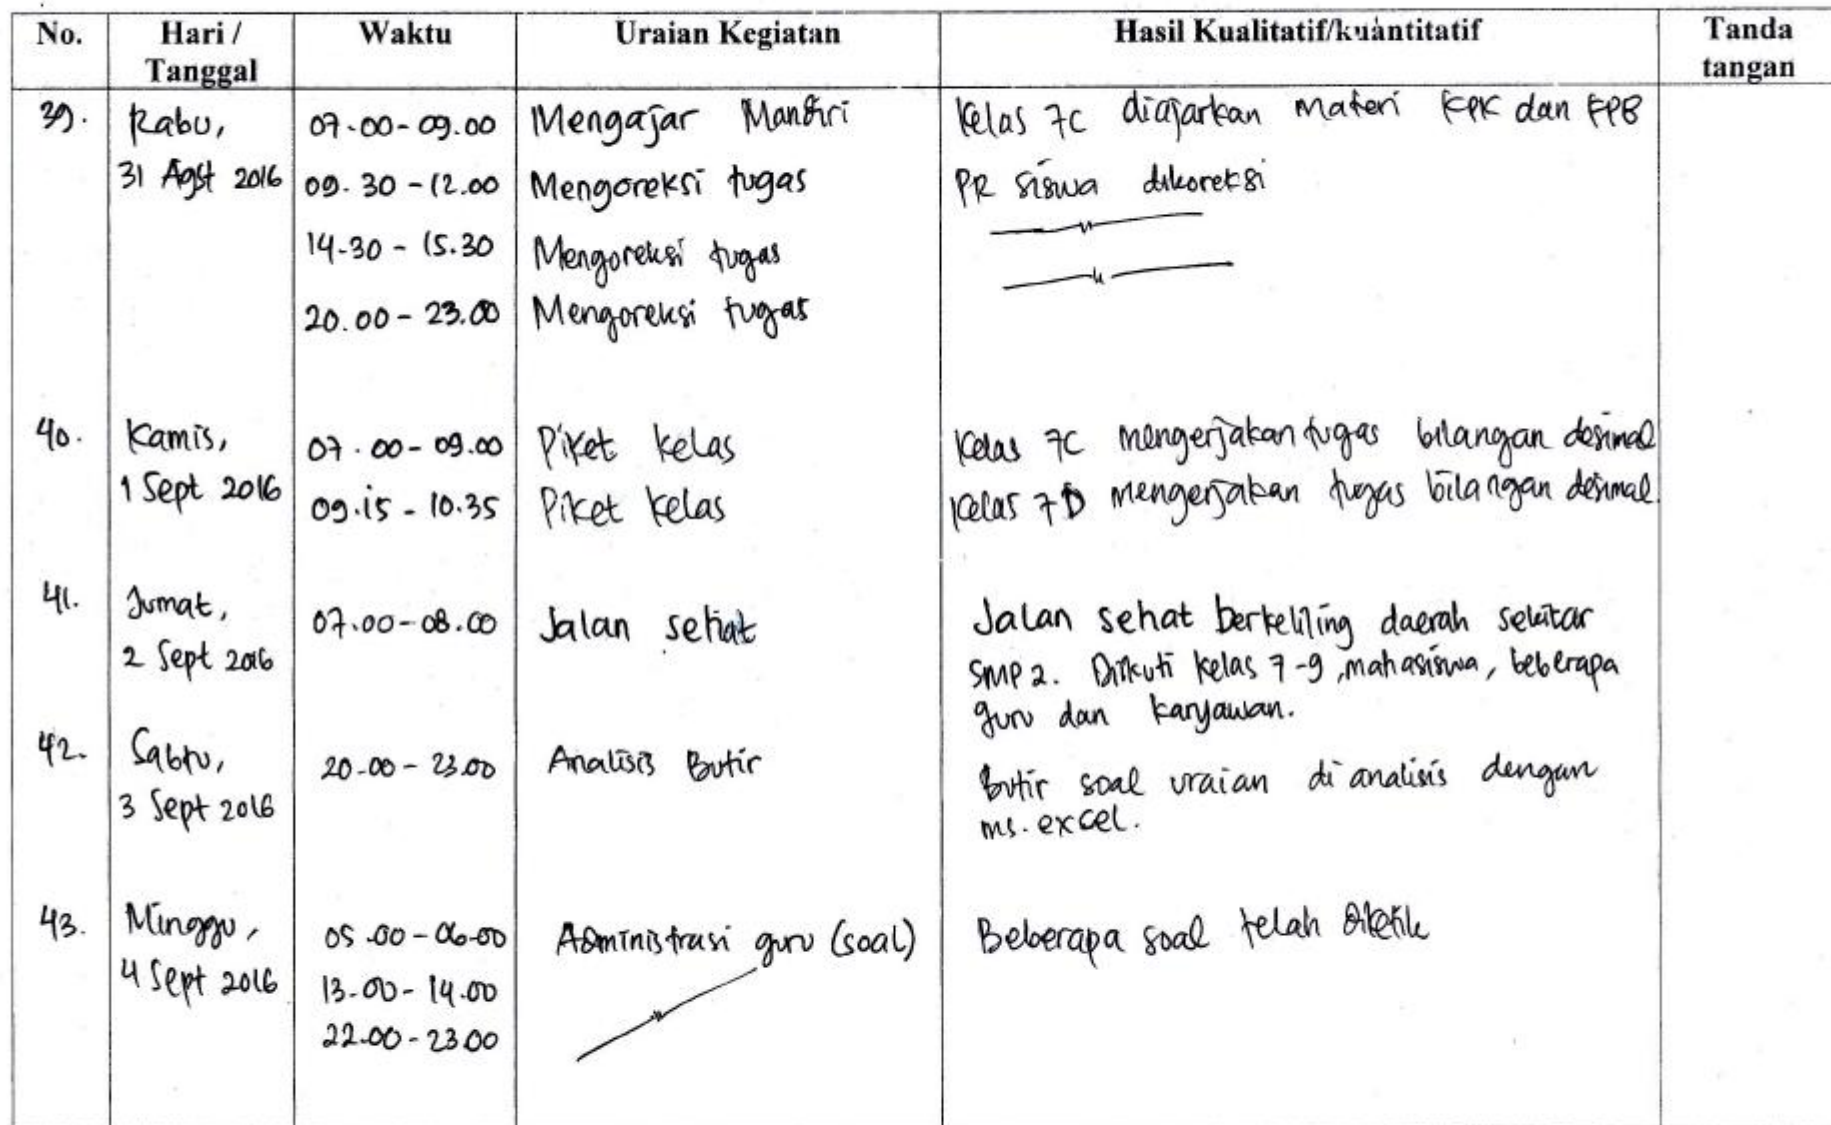 No. Hari / Tanggal Waktu Uraian Kegiatan Hasil Kualitatif/kuantitatif Tanda tangan
39. Rabu, 07.00-09.00 Mengajar Mandiri Kelas 7C diajarkan materi KPK dan FPB
31 Agst 2016 09.30-12.00 Mengoreksi tugas PR siswa dikoreksi
14.30-15.30 Mengoreksi tugas
20.00-23.00 Mengoreksi tugas
40. Kamis, 07.00-09.00 Piket kelas Kelas 7C mengerjakan tugas bilangan desimal
1 Sept 2016 09.15-10.35 Piket kelas Kelas 7D mengerjakan tugas bilangan desimal.
41. Jumat, 07.00-08.00 Jalan sehat Jalan sehat berkeliling daerah sekitar
2 Sept 2016 SMP 2. Diikuti kelas 7-9, mahasiswa, beberapa
guru dan karyawan.
42. Sabtu, 20.00-23.00 Analisis Butir
3 Sept 2016 Butir soal uraian di analisis dengan
ms. excel.
43. Minggu, 05.00-06.00 Administrasi guru (soal) Beberapa soal telah diketik
4 Sept 2016 13.00-14.00
22.00-23.00